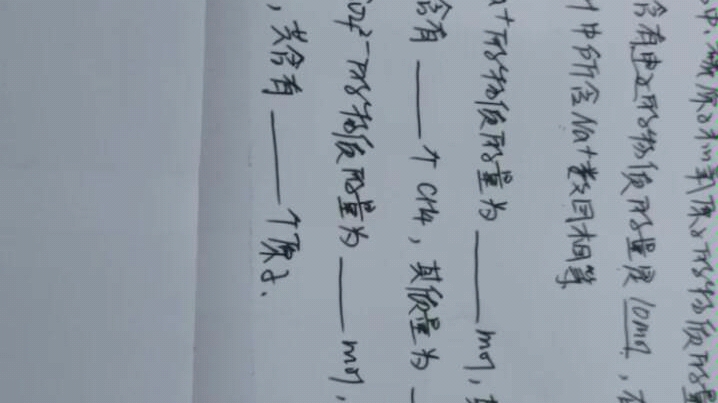 中,碳原子和氧原子的物质的量
含有电子的物质的量是 10mol,在
中所含Na+数目相等
a+的物质的量为____mol,其
含有____个CH4,其质量为
SO4²⁻的物质的量为____mol,
,共含有____个原子.